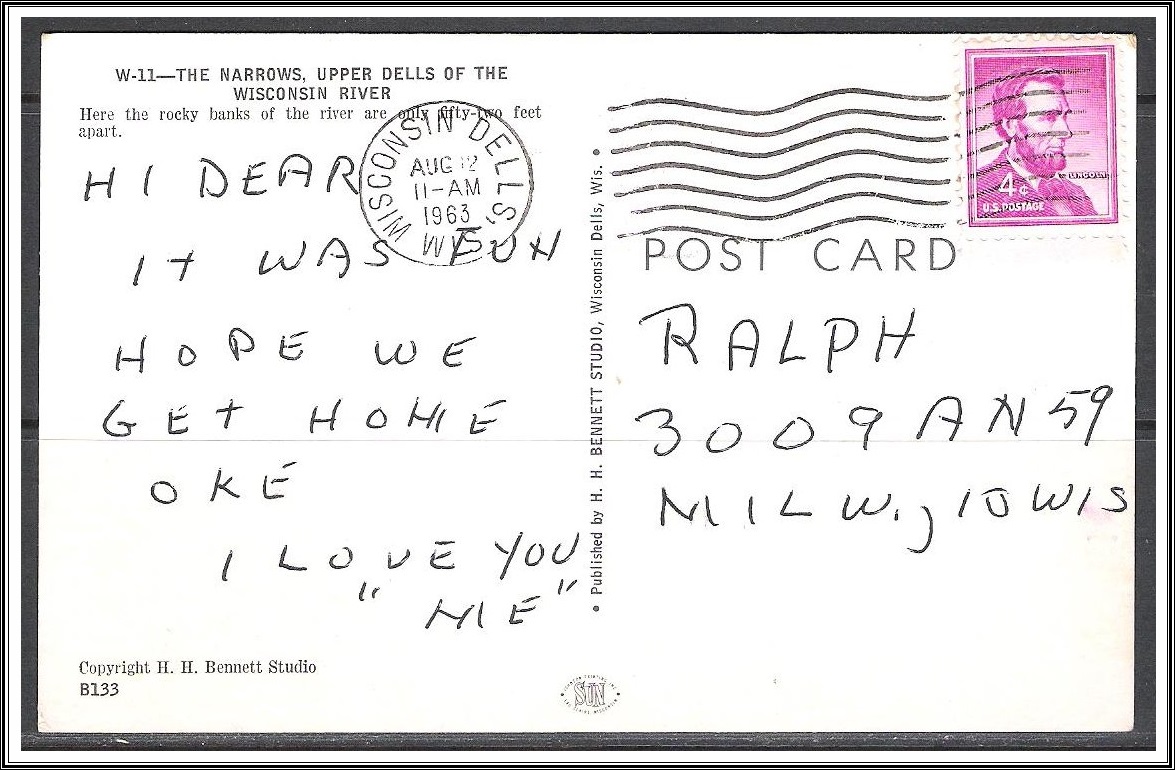 W-11—THE NARROWS, UPPER DELLS OF THE
WISCONSIN RIVER
Here the rocky banks of the river are only fifty-two feet
apart.
HI DEAR
IT WAS FUN
HOPE WE
GET HOME
OKE
I LOVE YOU
"ME"
Copyright H. H. Bennett Studio
B133
• Published by H. H. BENNETT STUDIO, Wisconsin Dells, Wis. •
SUN
WISCONSIN DELLS, WIS.
AUG 12
11-AM
1963
LINCOLN
4¢
U.S. POSTAGE
POST CARD
RALPH
3009 A N 59
MILW., 10 WIS